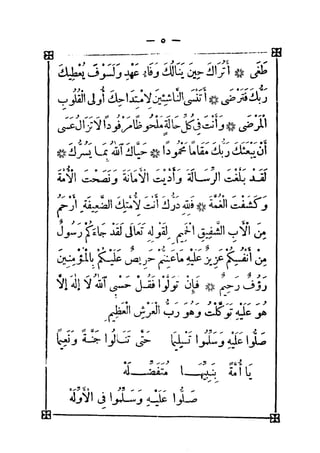 — ٥ —
طَغَى * أَتُرَاكَ حِينَ يَنَالُكَ وَفَاءُ عَهْدِ وَلَسَوْفَ يُعْطِيكَ
رَبُّكَ فَتَرْضَى * أَتَنْسَى النَّاشِئِينَ لِامْتِدَاحِكَ أُولِى الْقُلُوبِ
الْمَرْضَى * وَأَنْتَ فِى كُلِّ حَالَةٍ مَلْحُوظًا مَرْفُودًا لَا تَزَالُ عَسَى
أَنْ يَبْعَثَكَ رَبُّكَ مَقَامًا مَحْمُودًا * حَيَّاكَ اللّٰهُ بِمَا يَسُرُّكَ *
لَقَدْ بَلَّغْتَ الرِّسَالَةَ وَأَدَّيْتَ الْأَمَانَةَ وَنَصَحْتَ الْأُمَّةَ
وَكَشَفْتَ الْغُمَّةَ * فَلِلّٰهِ دَرُّكَ أَنْتَ لِأُمَّتِكَ الضَّعِيفَةِ أَرْحَمُ
مِنَ الْأَبِ الشَّفِيقِ الْحَمِيمِ لِقَوْلِهِ تَعَالَى لَقَدْ جَاءَكُمْ رَسُولٌ
مِنْ أَنْفُسِكُمْ عَزِيزٌ عَلَيْهِ مَا عَنِتُّمْ حَرِيصٌ عَلَيْكُمْ بِالْمُؤْمِنِينَ
رَؤُفٌ رَحِيمٌ * فَإِنْ تَوَلَّوْا فَقُلْ حَسْبِىَ اللّٰهُ لَا إِلٰهَ إِلَّا
هُوَ عَلَيْهِ تَوَكَّلْتُ وَهُوَ رَبُّ الْعَرْشِ الْعَظِيمِ
صَلُّوا عَلَيْهِ وَسَلِّمُوا تَسْلِيمًا حَتَّى تَنَالُوا جَنَّةً وَنَعِيمًا
يَا أُمَّةً بِنَبِيِّهَا مُتَفَضِّلَهْ
صَلُّوا عَلَيْهِ وَسَلِّمُوا فِى الْأَوَّلَهْ